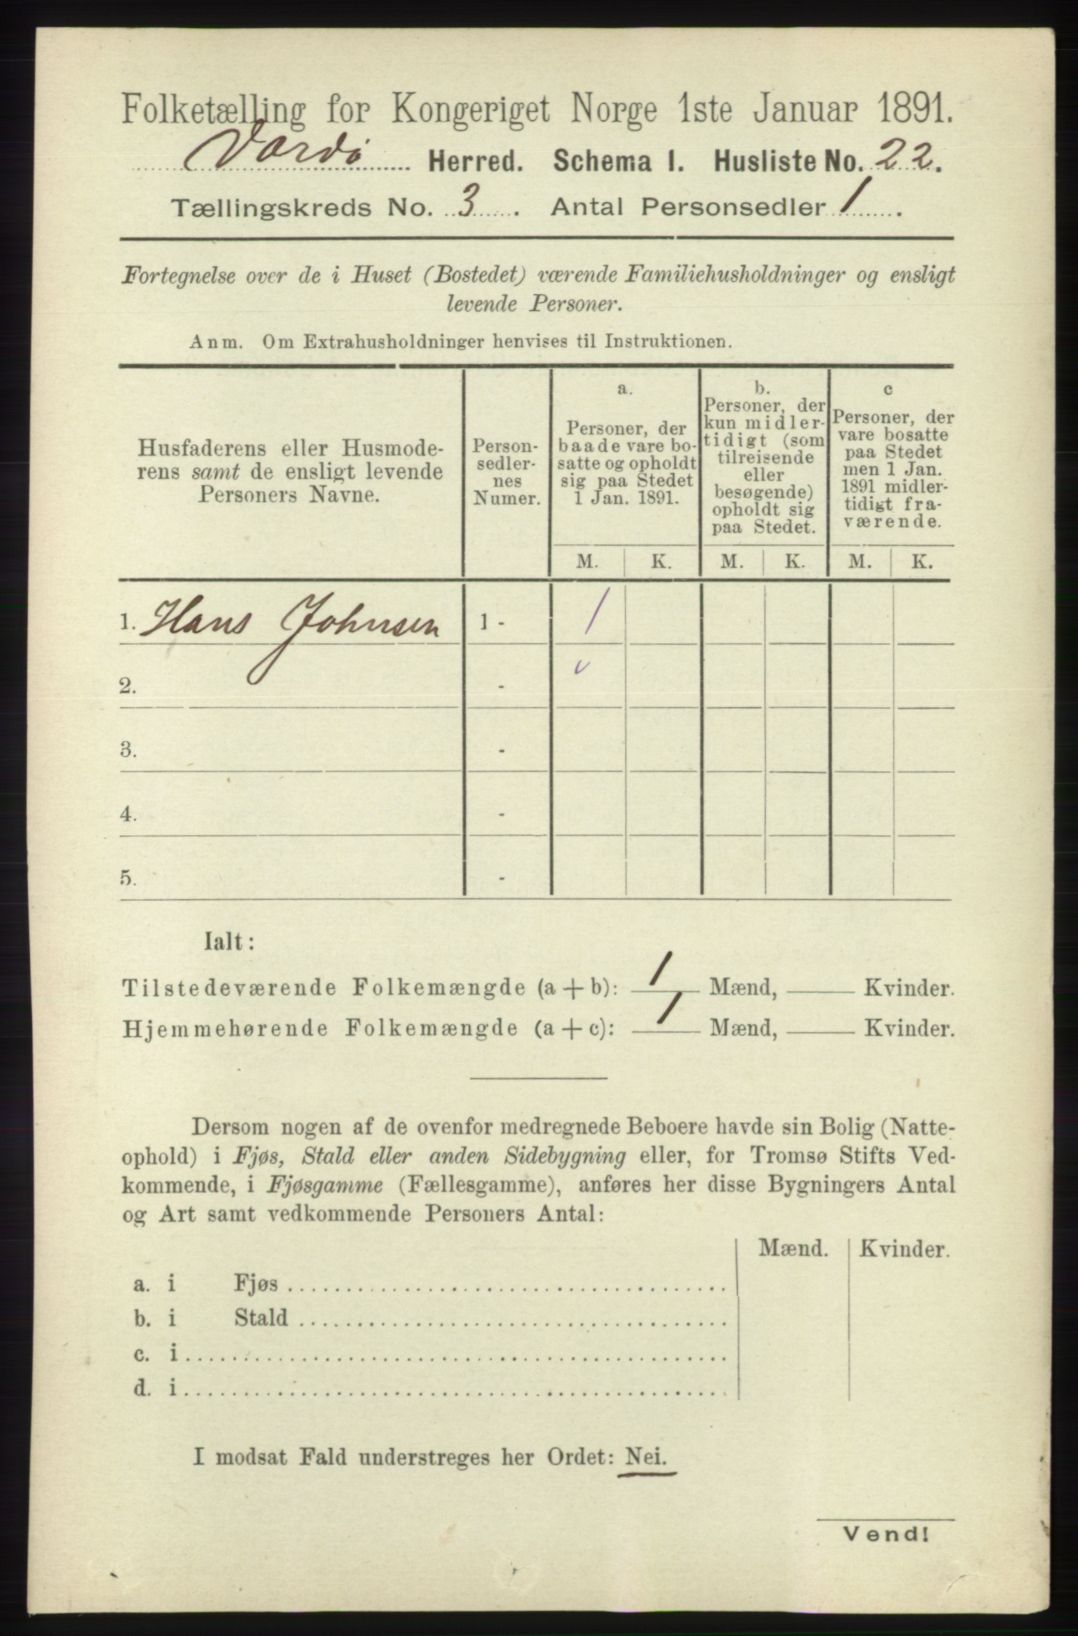 Folketælling for Kongeriget Norge 1ste Januar 1891.
Vardø Herred. Schema I. Husliste No. 22.
Tællingskreds No. 3. Antal Personsedler 1.
Fortegnelse over de i Huset (Bostedet) værende Familiehusholdninger og ensligt
levende Personer.
Anm. Om Extrahusholdninger henvises til Instruktionen.
Husfaderens eller Husmode-
rens samt de ensligt levende
Personers Navne.
Person-
sedler-
nes
Numer.
a.
Personer, der
baade vare bo-
satte og opholdt
sig paa Stedet
1 Jan. 1891.
b.
Personer, der
kun midler-
tidigt (som
tilreisende
eller
besøgende)
opholdt sig
paa Stedet.
c
Personer, der
vare bosatte
paa Stedet
men 1 Jan.
1891 midler-
tidigt fra-
værende.
M. K. M. K. M. K.
1. Hans Johnsen 1 - 1
2. -
3. -
4. -
5. -
Ialt:
Tilstedeværende Folkemængde (a + b): 1 Mænd, Kvinder.
Hjemmehørende Folkemængde (a + c): 1 Mænd, Kvinder.
Dersom nogen af de ovenfor medregnede Beboere havde sin Bolig (Natte-
ophold) i Fjøs, Stald eller anden Sidebygning eller, for Tromsø Stifts Ved-
kommende, i Fjøsgamme (Fællesgamme), anføres her disse Bygningers Antal
og Art samt vedkommende Personers Antal:
Mænd. Kvinder.
a. i Fjøs
b. i Stald
c. i
d. i
I modsat Fald understreges her Ordet: Nei.
Vend!